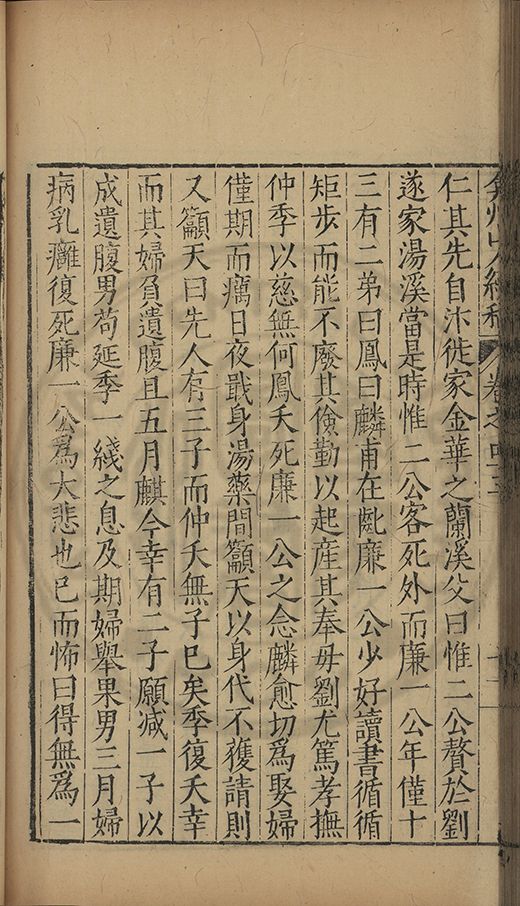 弇州山人續稿 卷之
仁其先自汴徙家金華之蘭溪父曰惟二公贅於劉
遂家湯溪當是時惟二公客死外而廉一公年僅十
三有二弟曰鳳曰麟甫在齔廉一公少好讀書循循
矩步而能不廢其儉勤以起産其奉母劉尤篤孝撫
仲季以慈無何鳳夭死廉一公之念麟愈切爲娶婦
僅期而癘日夜戢身湯藥間籲天以身代不獲請則
又籲天曰先人有三子而仲夭無子已矣季復夭幸
而其婦負遺腹且五月麒今幸有二子願减一子以
成遺腹男苟延季一綫之息及期婦舉果男三月婦
病乳癰復死廉一公爲大悲也已而怖曰得無爲一